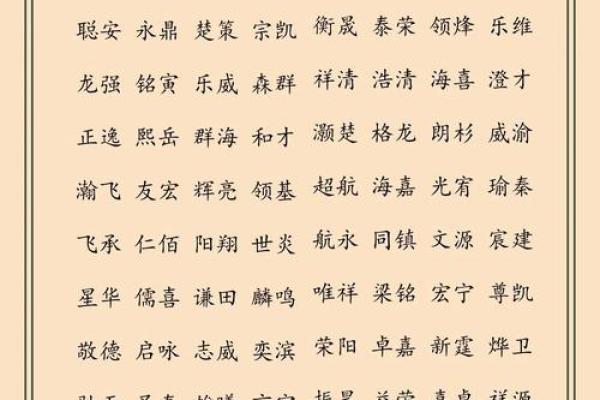 聪安 永鼎 楚策 宗凯 衡晟 泰荣 领烽 乐维
龙强 铭寅 乐威 森群 祥清 浩清 海喜 澄才
正逸 熙岳 群海 和才 灏楚 格龙 朗杉 威渝
瀚飞 友宏 辉亮 领基 超航 海嘉 光宥 瑜秦
飞承 仁佰 阳翔 世炎 航永 同镇 文源 宸建
星华 儒喜 谦田 麟鸣 唯祥 梁铭 宏宁 尊凯
敬德 启咏 志威 奕滨 荣阳 卓嘉 新霆 烨卫